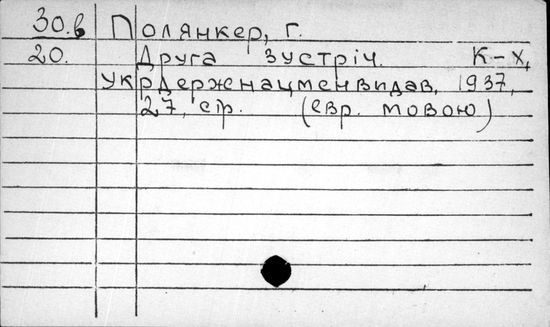 30.в Полянкер, г.
20. Друга зустріч. К-Х,
Укрдержнацменвидав, 1937,
27, стр. (евр. мовою)